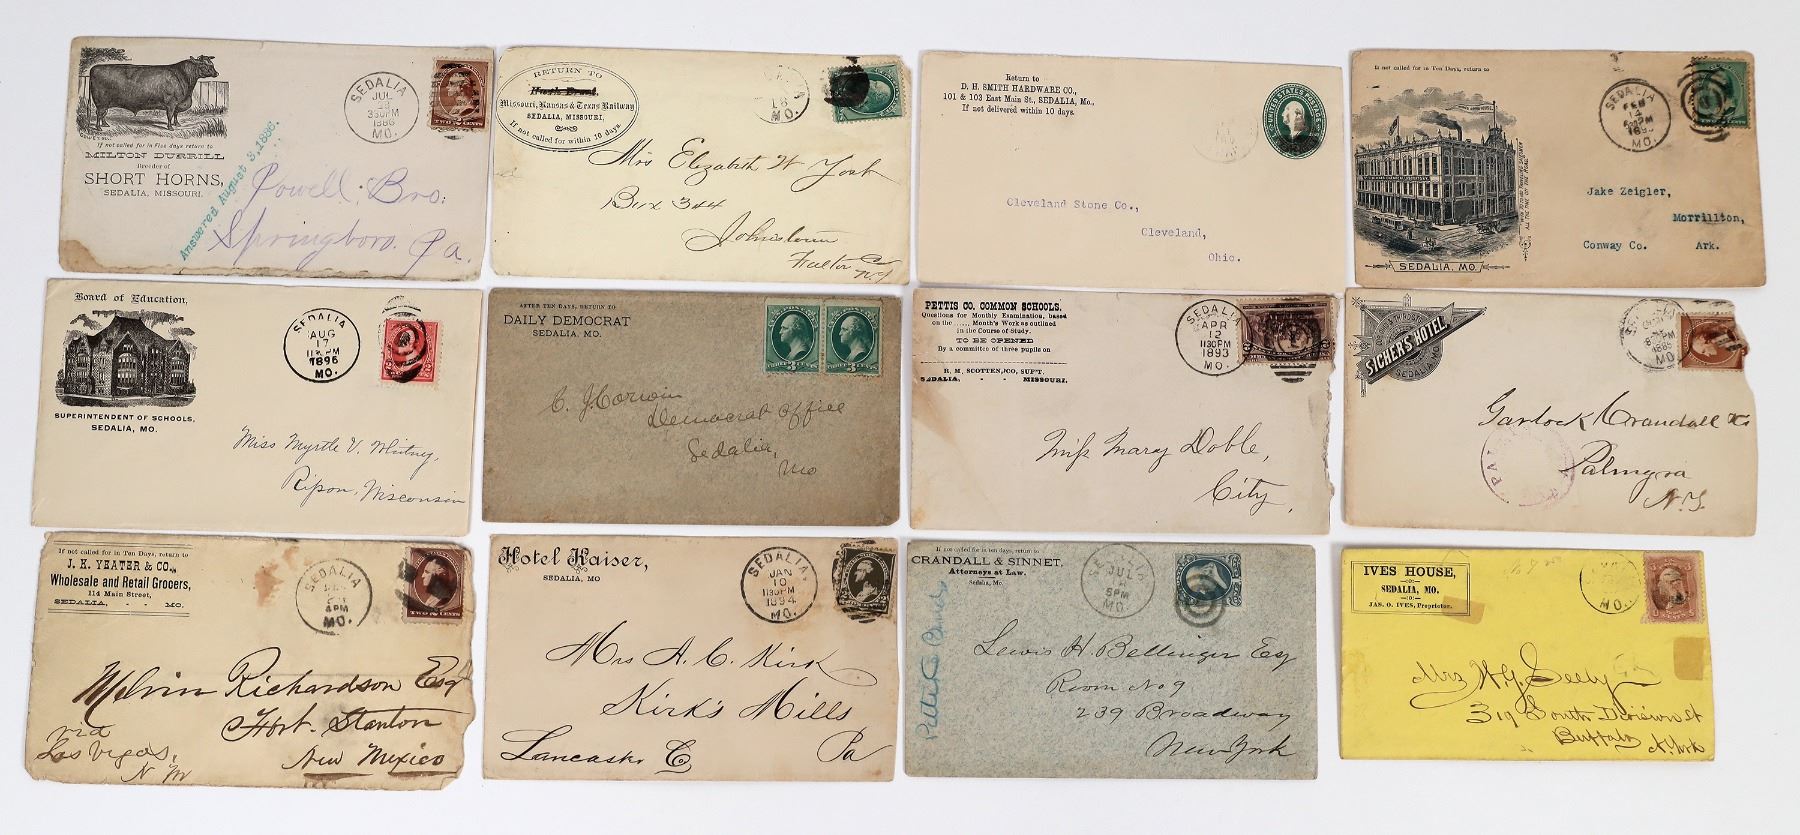 If not called for in Five days return to
MILTON DURRILL
Breeder of
SHORT HORNS,
SEDALIA, MISSOURI.
Answered August 3, 1886.
SEDALIA
JUL
1886
MO.
TWO CENTS
Powell Bro.
Springboro. Pa.
RETURN TO
Missouri, Kansas & Texas Railway
SEDALIA, MISSOURI,
If not called for within 10 days.
MO.
Mrs Elizabeth W York
Box 344
Johnstown
Fulton Co
N.Y
Return to
D. H. SMITH HARDWARE CO.,
101 & 103 East Main St., SEDALIA, Mo.,
If not delivered within 10 days.
UNITED STATES POSTAGE
Cleveland Stone Co.,
Cleveland,
Ohio.
If not called for in Ten Days, return to
SEDALIA, MO.
SEDALIA
FEB
MO.
Jake Zeigler,
Morrillton,
Conway Co. Ark.
Board of Education,
SUPERINTENDENT OF SCHOOLS,
SEDALIA, MO.
SEDALIA
AUG
17
1896
MO.
Miss Myrtle V. Whitney,
Ripon, Wisconsin
AFTER TEN DAYS, RETURN TO
DAILY DEMOCRAT
SEDALIA, MO.
C. J. Corwin
Democrat Office
Sedalia,
Mo
PETTIS CO. COMMON SCHOOLS.
Questions for Monthly Examination, based
on the ...... Month's Work as outlined
in the Course of Study.
TO BE OPENED
By a committee of three pupils on
R. M. SCOTTEN, CO. SUP'T.
SEDALIA, - - MISSOURI.
SEDALIA
APR
12
1130PM
1893
MO.
Miss Mary Doble,
City
SICHER'S HOTEL
SEDALIA, MO.
MO.
Garlock Crandall & Co
Palmyra
N.Y.
If not called for in Ten Days, return to
J. K. YEATER & CO.,
Wholesale and Retail Grocers,
114 Main Street,
SEDALIA, - - MO.
SEDALIA
4PM
MO.
Melvin Richardson Esq
Fort Stanton
via
Las Vegas,
N M
New Mexico
Hotel Kaiser,
SEDALIA, MO
SEDALIA
JAN
10
1130PM
1894
MO.
Mrs A. C. Kirk
Kirk's Mills
Lancaster C
Pa
If not called for in ten days, return to
CRANDALL & SINNET,
Attorneys at Law.
Sedalia, Mo.
SEDALIA
JUL
5PM
MO.
Lewis H. Bellinger Esq
Room No 9
239 Broadway
New York
IVES HOUSE,
SEDALIA, MO.
JAS. O. IVES, Proprietor.
MO.
Mrs W. G. Seeby
319 South Division St
Buffalo N. York